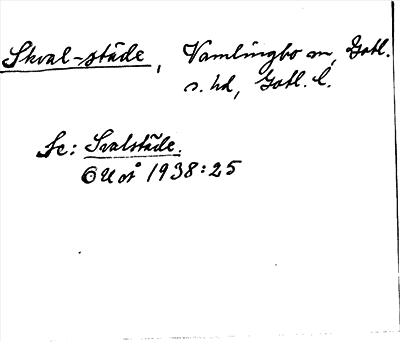 Skval-städe, Vamlingbo sn, Gotl.
s. hd, Gotl. l.
Se: Svalstäde.
OUoÅ 1938:25